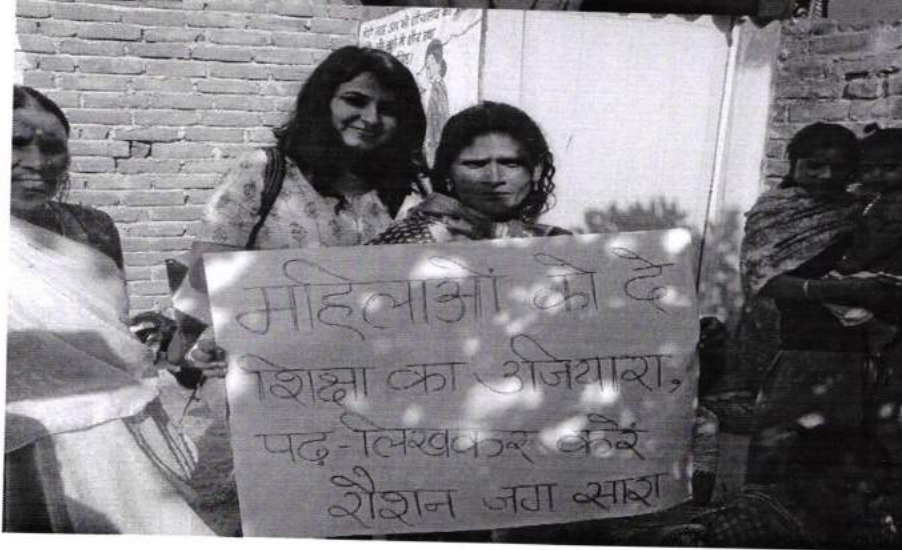 महिलाओं को दे
शिक्षा का उजियारा,
पढ़-लिखकर करें
रौशन जग सारा